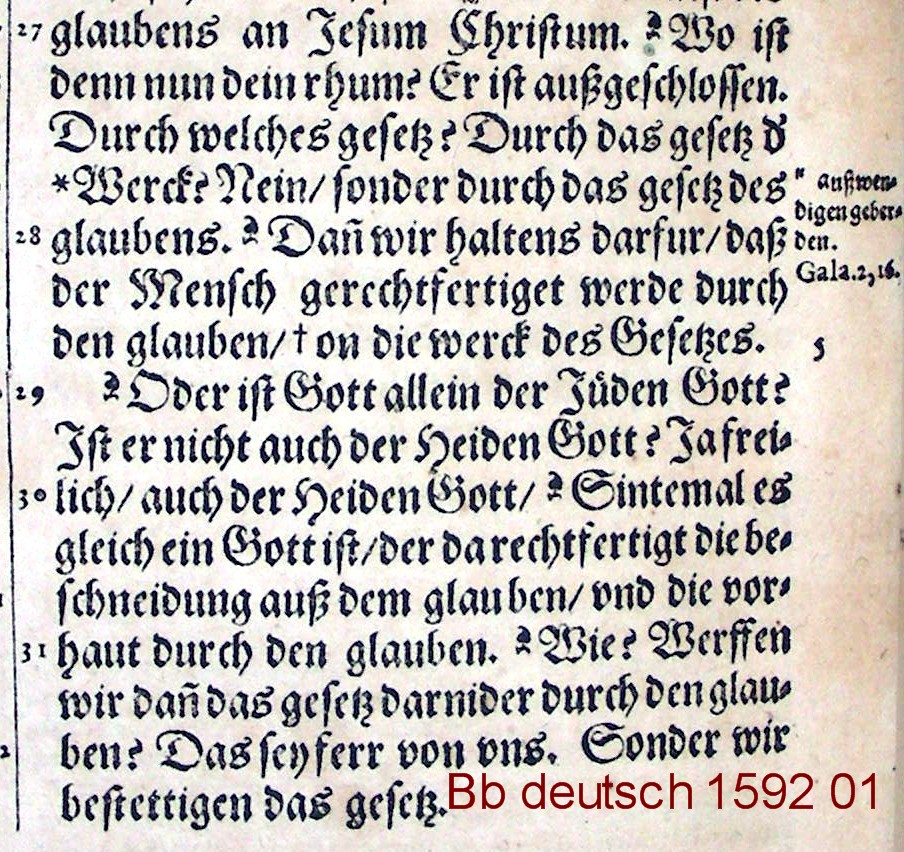 27 glaubens an Jesum Christum. ² Wo ist
denn nun dein rhum? Er ist außgeschlossen.
Durch welches gesetz? Durch das gesetz d'
*Werck? Nein/ sonder durch das gesetz des
28 glaubens. ² Dañ wir haltens darfur/ daß
der Mensch gerechtfertiget werde durch
den glauben/ † on die werck des Gesetzes.
29 ² Oder ist Gott allein der Jüden Gott?
Ist er nicht auch der Heiden Gott? Ja frei-
30 lich/ auch der Heiden Gott/ ² Sintemal es
gleich ein Gott ist/ der da rechtfertigt die be-
schneidung auß dem glauben/ vnd die vor-
31 haut durch den glauben. ² Wie? Werffen
wir dañ das gesetz darnider durch den glau-
ben? Das sey ferr von vns. Sonder wir
bestettigen das gesetz.
" außwen-
digen geber-
den.
Gala.2,16.
5
Bb deutsch 1592 01